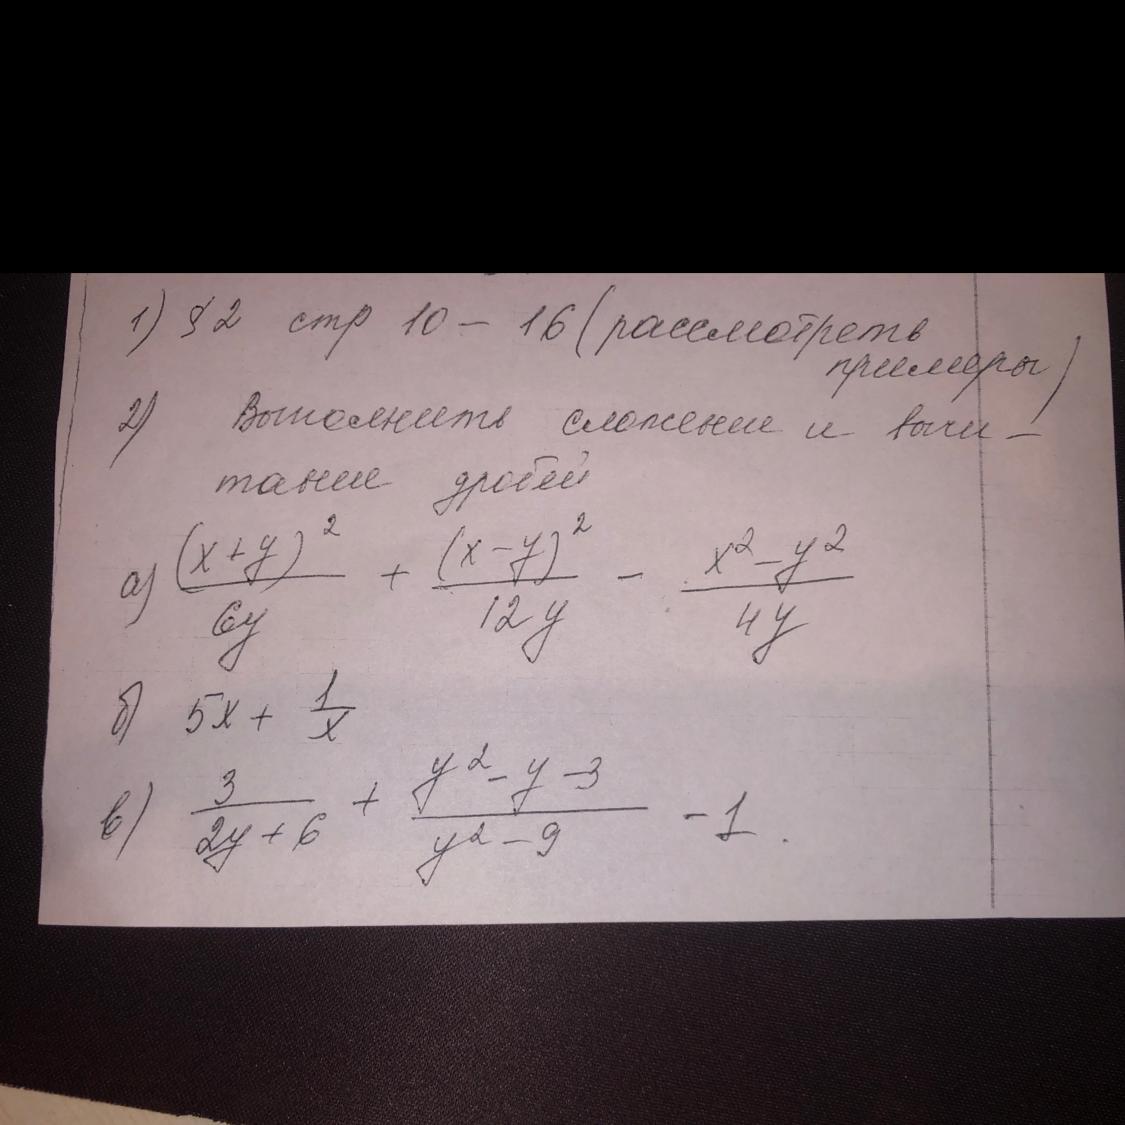 1) §2 стр 10 – 16 (рассмотреть
примеры)
2) Выполнить сложение и вычи –
тание дробей
а) (x+y)²/6y + (x–y)²/12y – x²–y²/4y
б) 5x + 1/x
в) 3/2y+6 + y²–y–3/y²–9 –1.